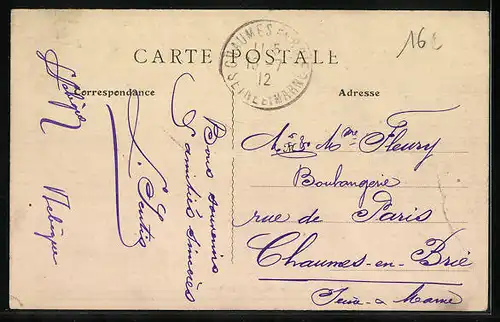 CARTE POSTALE
Correspondance
Adresse
CHAUMES EN BRIE
12
SEINE ET MARNE
16 E
Bons souvenirs
& amitiés sincères
Mr & Mme Fleury
Boulangerie
rue de Paris
Chaumes-en-Brie
Seine-&-Marne